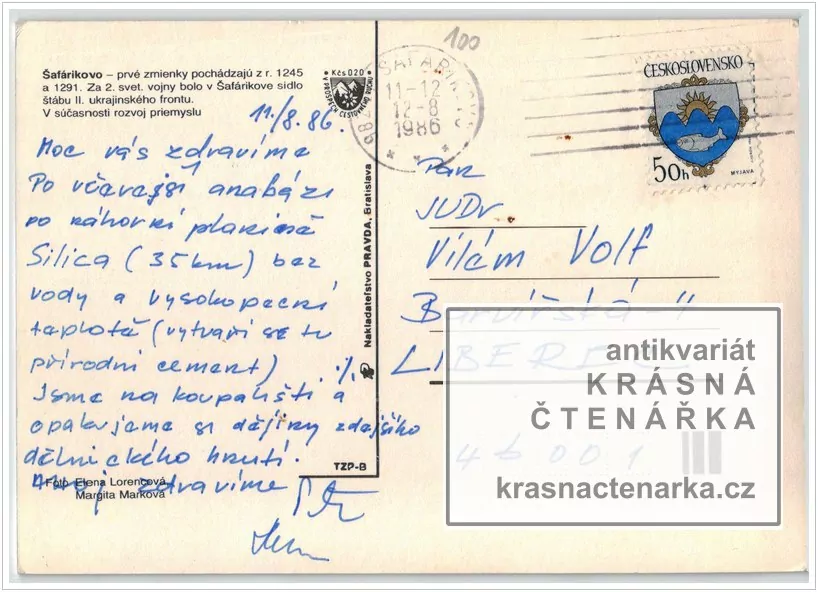 Šafárikovo – prvé zmienky pochádzajú z r. 1245
a 1291. Za 2. svet. vojny bolo v Šafárikove sídlo
štábu II. ukrajinského frontu.
V súčasnosti rozvoj priemyslu
Kčs 0,20
V PROSPECH CESTOVNÉHO RUCHU
11./8.86.
Moc vás zdravíme
Po včerejší anabázi
po náhorní planině
Silica (35km) bez
vody a vysokopecní
teplotě (vytváří se tu
přírodní cement) ./.
Jsme na koupališti a
opakujeme si dějiny zdejšího
dělnického hnutí.
zdravíme
Foto: Elena Lorencová
Margita Marková
Nakladateľstvo PRAVDA, Bratislava
TZP-B
100
ŠAFÁRIKOVO
11-12
12-8
1986
ČESKOSLOVENSKO
50h
MYJAVA
Pan
JUDr
Vilám Volf
Barvířská 4
LIBEREC
46001
III
antikvariát
KRÁSNÁ
ČTENÁŘKA
krasnactenarka.cz